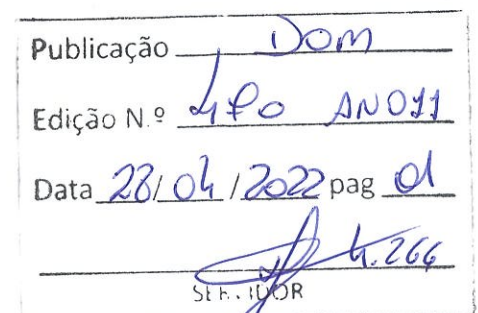 Publicação DOM
Edição N.º 470 ANO 11
Data 28/04/2022 pag 01
4.266
SERVIDOR